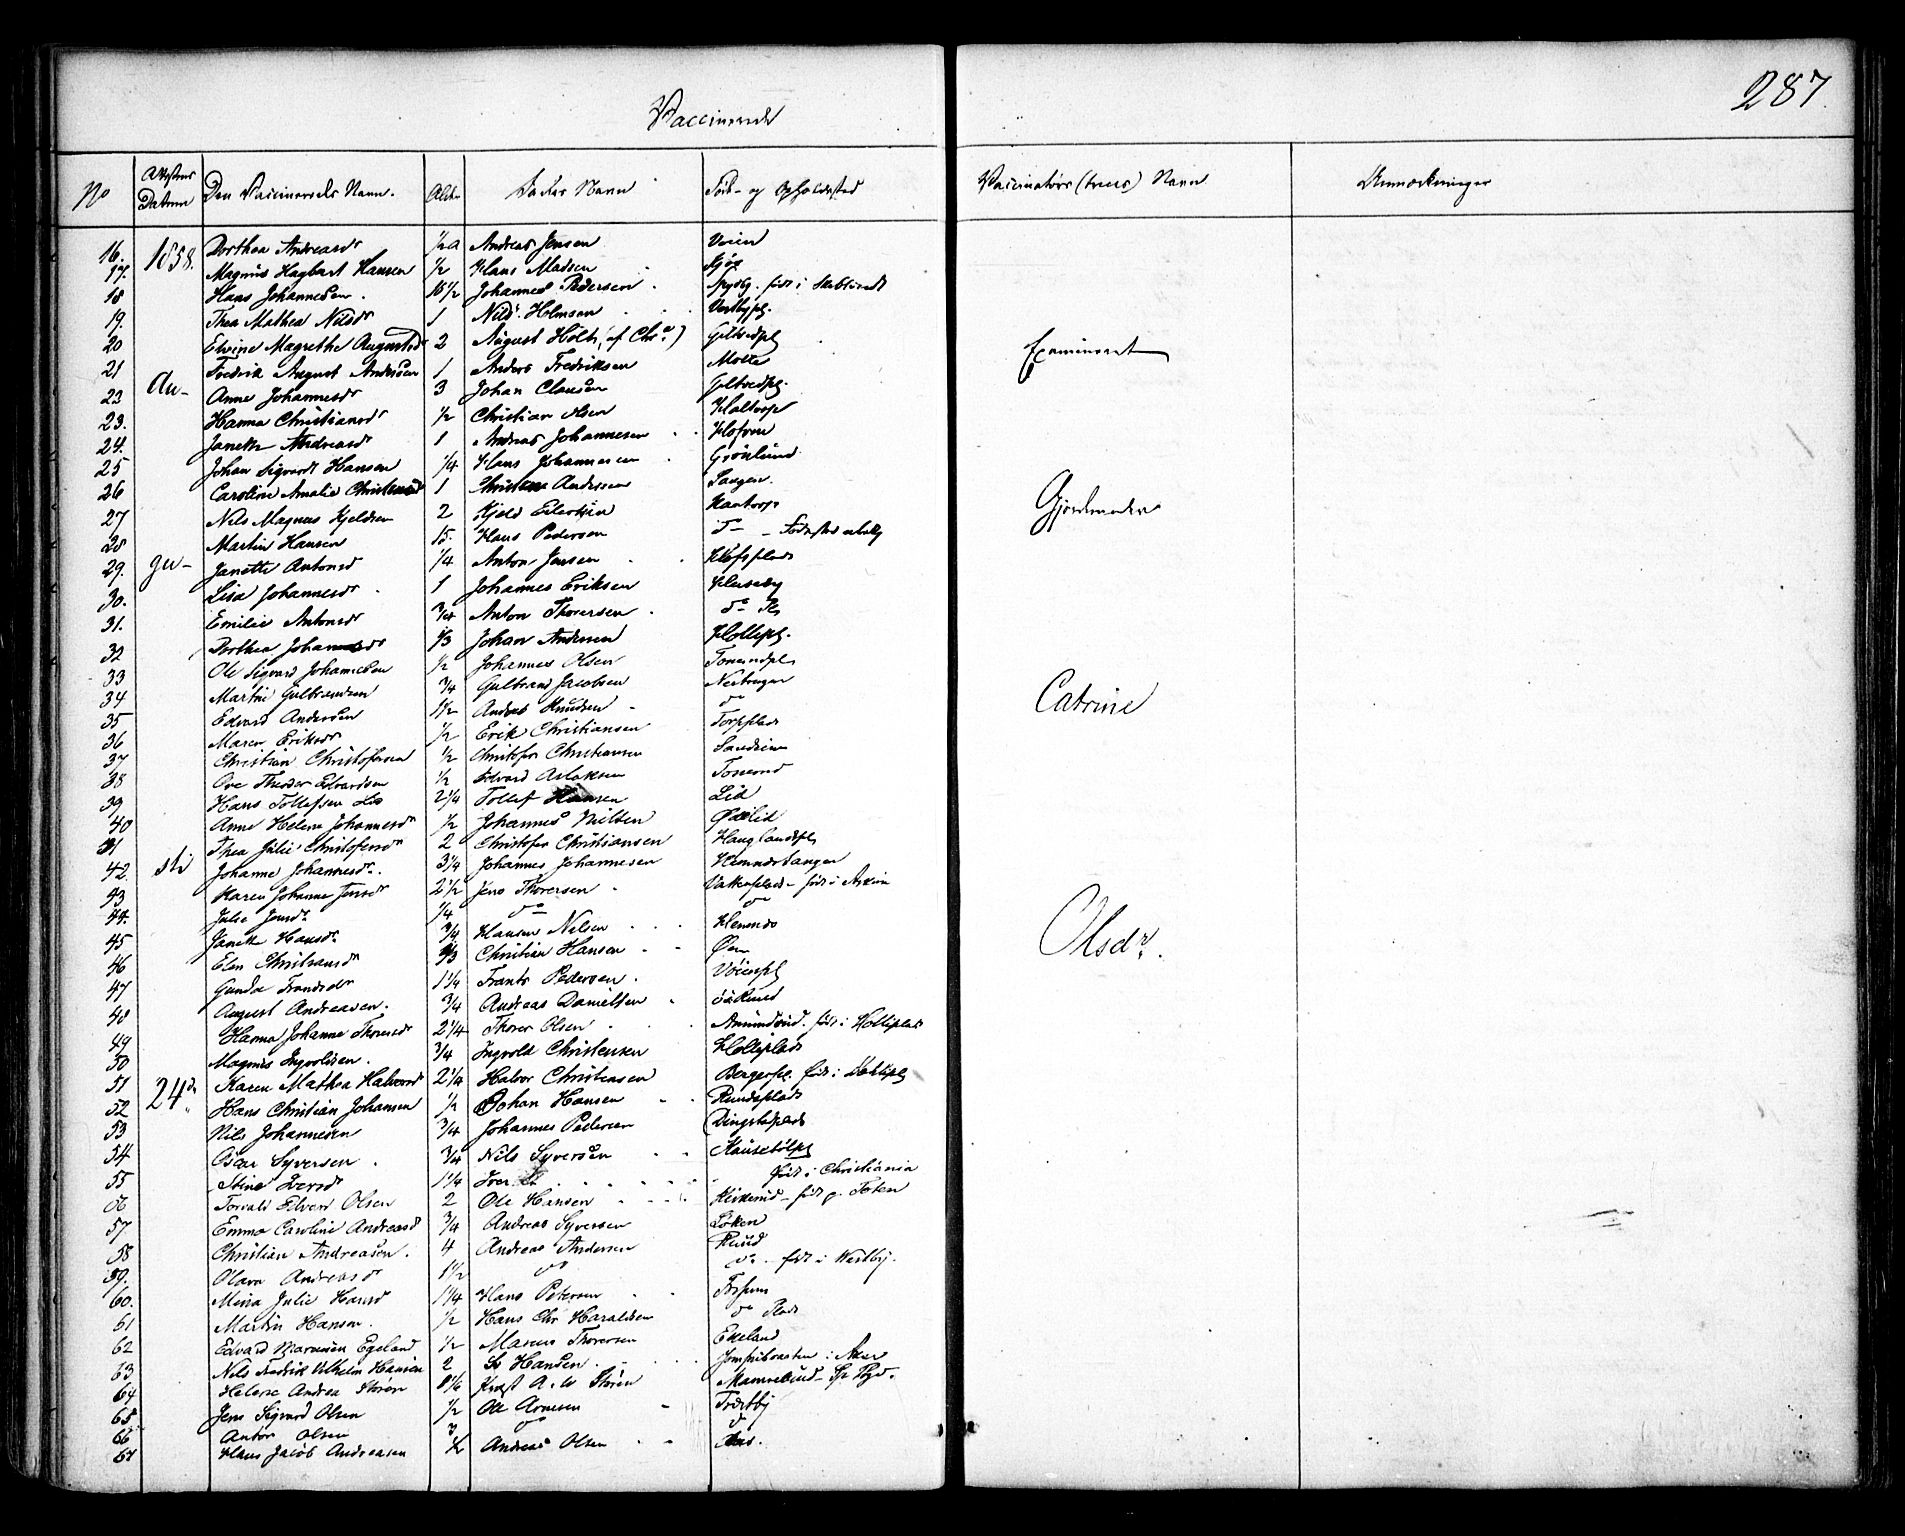 287.
Vaccinerede
No Attestens Datum Den Vaccineredes Navn. Alder Faders Navn Føde- og Opholdssted Vaccinatørs (trices) Navn Anmærkninger
16. 1858. Dorthea Andreasdr 1/2 a Andreas Jensen Voien
17. Magnus Hagbart Hansen 1/2 Hans Madsen
18 Hans Johannesen. 10 1/2 Johannes Pedersen Spydbg. født i
19. Thea Mathea Nilsdr 1 Nils Holmsen Vestbypl.
20 Elvine Magrethe Augustsdr 2 August Holts (af Chra) Geltvedpl Examineret
21 Fredrik August Andersen 1 Anders Fredriksen Molte
23 Au- Anne Johannesdr 3 Johan Clausen Geltvedpl.
23. Hanna Christiansdr 1/2 Christian Olsen Haltorp
24. Janette Andreasdr 1 Andreas Johannesen Hofven
25 Johan Sigvardt Hansen 1/4 Hans Johannesen Grönlund
26 Caroline Amalie Christensdr 1 Christen Andersen Tangen.
27 Nils Magnus Kjeldsen 2 Kjeld Eilertsen Hantorp Gjordemoder
28 Martin Hansen 15. Hans Pedersen do - Fødested
29. gu- Janette Antonsd 1/4 Anton Jensen Hofsplads
30. Lisa Johannesdr 1 Johannes Eriksen Huseby
31. Emilie Antonsdr 3/4 Anton Thoresen do Pl
32 Dorthea Johansdr 1/3 Johan Andersen Hollipl.
33 Ole Sigvard Johannesen 1/2 Johannes Olsen Tomundpl
34 Martin Gulbrandsen 3/4 Gulbrand Jacobsen Nerbrugen
35 Edvard Andersen 1 1/2 Anders Knudsen do Catrine
36 Maren Eriksdr 1/2 Erik Christiansen Torpplads
37 Christian Christofersen 1/2 Christofer Christiansen Sandstuen
38 Ove Theodor Edvardsen 1/2 Edvard Aslaksen Tomund
39 Hans Tollefsen Lie 2 1/4 Tollef Hansen Lid
40 Anne Helene Johannesdr 1/2 Johannes Nielsen Ødelid
41 Thea Julie Christofersdr 2 Christofer Christiansen Hauglandspl
42. sti Johanne Johannesdr. 3 1/4 Johannes Johannesen Hemnestangen
43 Karen Johanne Jensdr 2 1/2 Jens Thoresen Vakerplads - født i Askim
44. Julie Jensdr 1/4 do do
45 Janette Hansdr 3/4 Hansen Nilsen Hemnes
46 Elen Christiansdr 2/3 Christian Hansen Øen Olsdr.
47 Gunda Frantsdr 1 1/4 Frants Pedersen. Vöienpl
48 August Andreasen. 3/4 Andreas Danielsen
49 Hanna Johanne Thoresdr 2 1/4 Thorer Olsen Amundrud. født i Holliplads
50 Magnus Ingvoldsen. 3/4 Ingvold Christensen Holliplads
51 24de Karen Mathea Halvorsdr 2 1/4 Halvor Christensen Bergerpl. født i Dahlspl
52 Hans Christian Johansen 1/2 Johan Hansen Rundeplads
53 Nils Johannesen 3/4 Johannes Pedersen Dingstadplads
54 Oscar Syversen 3/4 Nils Syversen Knusebölpl
55 Stine Iversd 1 1/4 Iver født i Christiania
56 Torvald Edvard Olsen 2 Ole Hansen Kirkerud - født p. Toten
57 Emma Caroline Andreasd 3/4 Andreas Syversen Löken
58 Christian Andreasen. 4 Andreas Andersen Ruud
59. Olava Andreasdr 1 1/2 do do født i Westby.
60. Mina Julie Hansd 1 1/4 Hans Petersen Fossum
61 Martin Hansen. 1/2 Hans Chr Haraldsen do Plads
62 Edvard Marensen Egeland 1/2 Marcus Thoresen Ekeland
63 Nils Fredrik Vilhelm Hansen 2 Hansen i Aker
64 Helene Andrea Stören 8 1/6 A. W Stören Mamrelund - Sp
65 Jens Sigvard Olsen 1/2 Ole Arnesen Trostby
66 Anton Olsen 3 do do
67 Hans Jacob Andreasen 1/2 Andreas Olsen Aas.